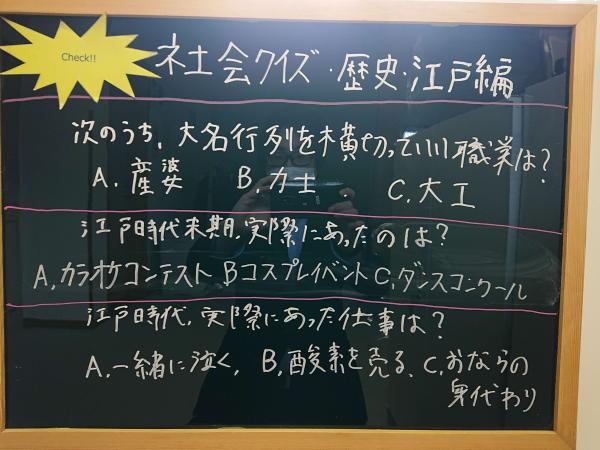 Check!!
社会クイズ・歴史・江戸編
次のうち、大名行列を横切っていい職業は?
A.産婆 B.力士 C.大工
江戸時代末期、実際にあったのは?
A.カラオケコンテスト Bコスプレイベント C.ダンスコンクール
江戸時代、実際にあった仕事は?
A.一緒に泣く、B.酸素を売る、C.おならの
身代わり